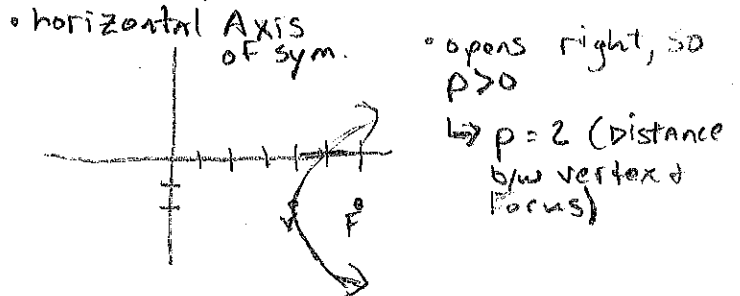 • horizontal Axis
of sym.
• opens right, so
p>0
↳ p = 2 (Distance
b/w vertex &
Focus)
V
F